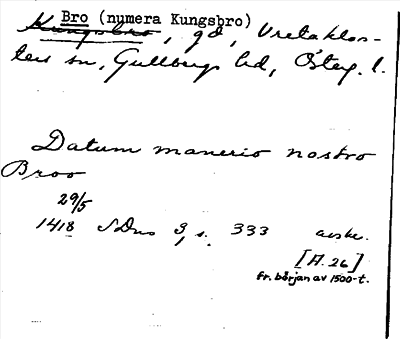 Bro (numera Kungsbro)
Kungsbro, gd, Vretaklos-
ters sn, Gullbergs hd, Östeg. l.
Datum manerio nostro
Broo
29/5
1418 SDns 3, s. 333 avskr.
[A. 26]
fr. början av 1500-t.